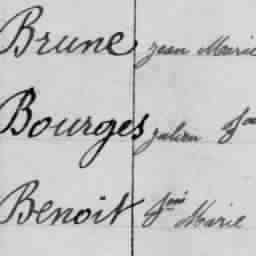 Brune jean Marie
Bourges julien
Benoit fois Marie